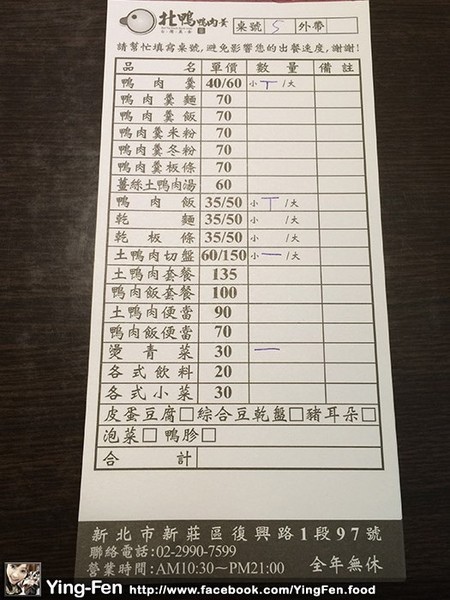 北鴨 鴨肉羹 桌號 5 外帶
請幫忙填寫桌號,避免影響您的出餐速度,謝謝!
品名 單價 數量 備註
鴨肉羹 40/60 小 丅 /大
鴨肉羹麵 70
鴨肉羹飯 70
鴨肉羹米粉 70
鴨肉羹冬粉 70
鴨肉羹板條 70
薑絲土鴨肉湯 60
鴨肉飯 35/50 小 丅 /大
乾麵 35/50 小 /大
乾板條 35/50 小 /大
土鴨肉切盤 60/150 小 一 /大
土鴨肉套餐 135
鴨肉飯套餐 100
土鴨肉便當 90
鴨肉飯便當 70
燙青菜 30 一
各式飲料 20
各式小菜 30
皮蛋豆腐□綜合豆乾盤□豬耳朵□
泡菜□ 鴨胗□
合計
新北市新莊區復興路1段97號
聯絡電話:02-2990-7599
營業時間:AM10:30~PM21:00 全年無休
Ying-Fen http://www.facebook.com/YingFen.food